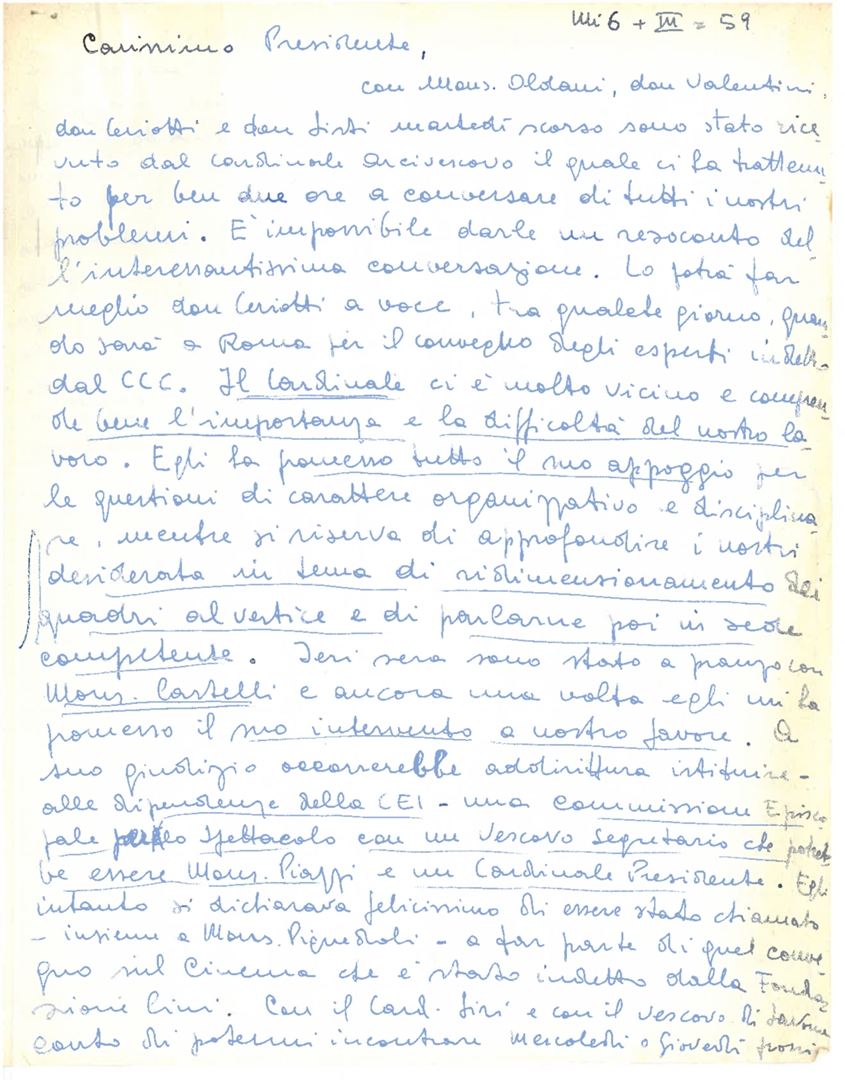 Mi 6 + III = 59
Carissimo Presidente,
con Mons. Oldani, don Valentini,
don Ceriotti e don Sisti martedì scorso sono stato rice
vuto dal Cardinale Arcivescovo il quale ci ha trattenu
to per ben due ore a conversare di tutti i nostri
problemi. E' impossibile darle un resoconto del
l'interessantissima conversazione. Lo potrà far
meglio don Ceriotti a voce, tra qualche giorno, quan
do sarà a Roma per il convegno degli esperti indetto
dal CCC. Il Cardinale ci è molto vicino e compren
de bene l'importanza e la difficoltà del nostro la
voro. Egli ha promesso tutto il suo appoggio per
le questioni di carattere organizzativo e disciplina
re, mentre si riserva di approfondire i nostri
desiderata in tema di ridimensionamento dei
quadri al vertice e di parlarne poi in sede
competente. Ieri sera sono stato a pranzo con
Mons. Castelli e ancora una volta egli mi ha
promesso il suo intervento a nostro favore. A
suo giudizio occorrerebbe addirittura istituire -
alle dipendenze della CEI - una Commissione Episco
pale per lo Spettacolo con un Vescovo segretario che potreb
be essere Mons. Piazzi e un Cardinale Presidente. Egli
intanto si dichiarava felicissimo di essere stato chiamato
- insieme a Mons. Pignedoli - a far parte di quel conve
gno sul Cinema che è stato indetto dalla Fonda
zione Cini. Con il Card. Siri e con il vescovo di Savona
conto di potermi incontrare Mercoledì o Giovedì prossi